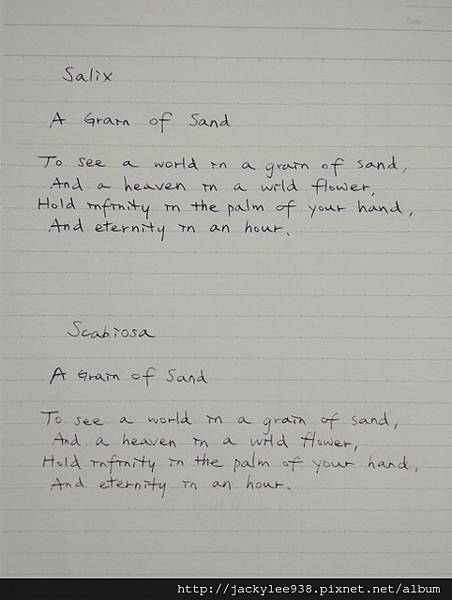 Date
Salix
A Grain of Sand
To see a world in a grain of sand,
And a heaven in a wild flower,
Hold infinity in the palm of your hand,
And eternity in an hour.
Scabiosa
A Grain of Sand
To see a world in a grain of sand,
And a heaven in a wild flower,
Hold infinity in the palm of your hand,
And eternity in an hour.
http://jackylee938.pixnet.net/album